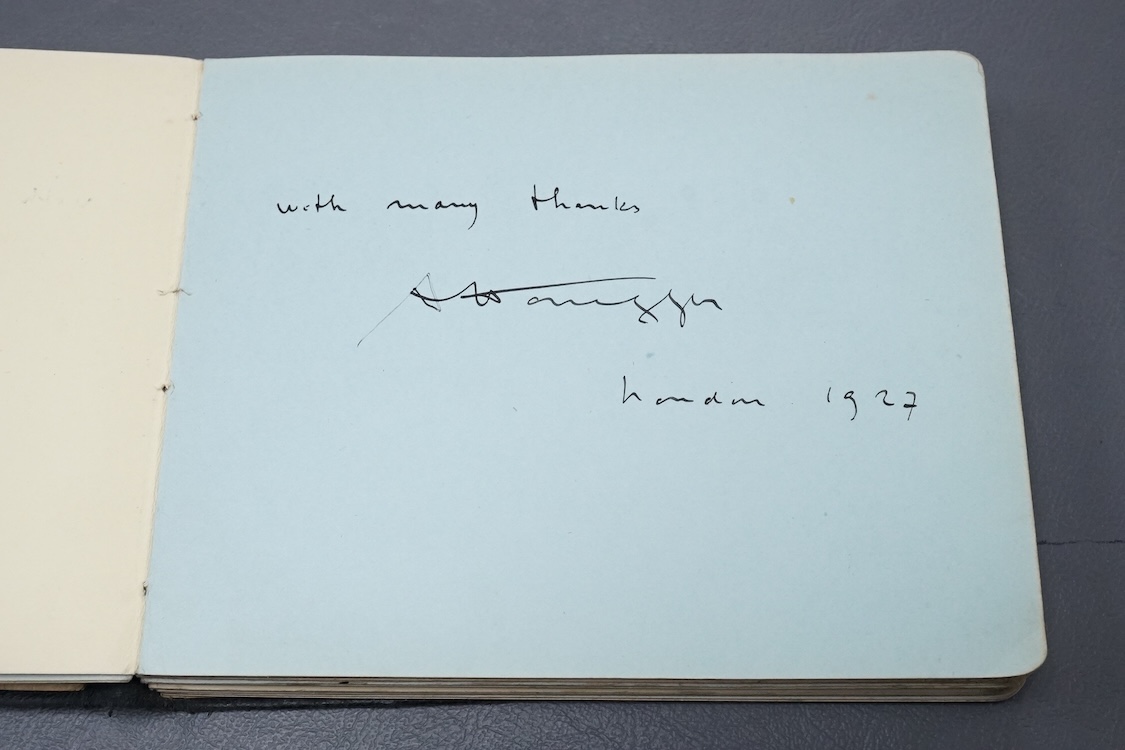 with many thanks
A Honegger
London 1927